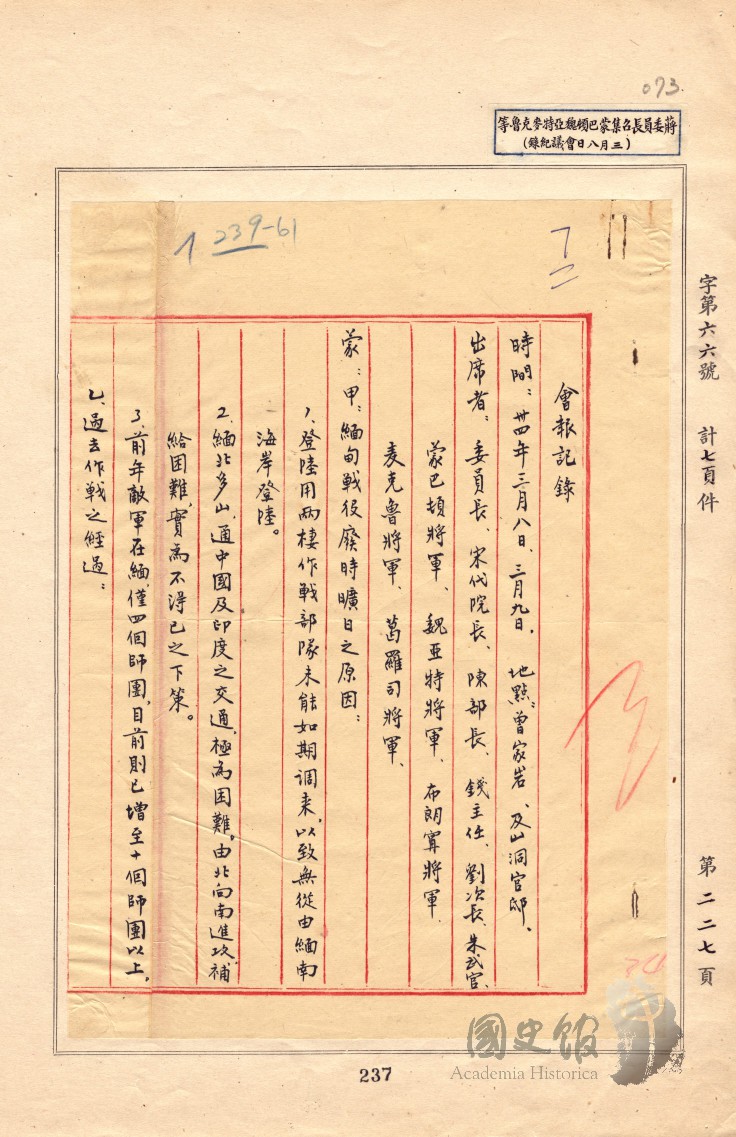 073.
蔣委員長召集蒙巴頓魏亞特麥克魯等
(三月八日會議紀錄)
字第六六號 計七頁件 第二二七頁
1 239-61
會報記錄
時間：卅四年三月八日、三月九日. 地點：曾家岩、及山洞官邸、
出席者：委員長、宋代院長、陳部長、錢主任、劉次長、朱武官、
蒙巴頓將軍、魏亞特將軍、布朗寗將軍、
麦克魯將軍、葛羅司將軍、
蒙：甲：緬甸戰役廢時曠日之原因：
1、登陸用兩棲作戰部隊未能如期調来，以致無從由緬南
海岸登陸。
2、緬北多山，通中國及印度之交通，極為困難。由北向南進攻，補
給困難，實為不得已之下策。
3、前年敵軍在緬，僅四個師團，目前則已增至十個師團以上。
乙、過去作戰之經過：
國史館
Academia Historica
237